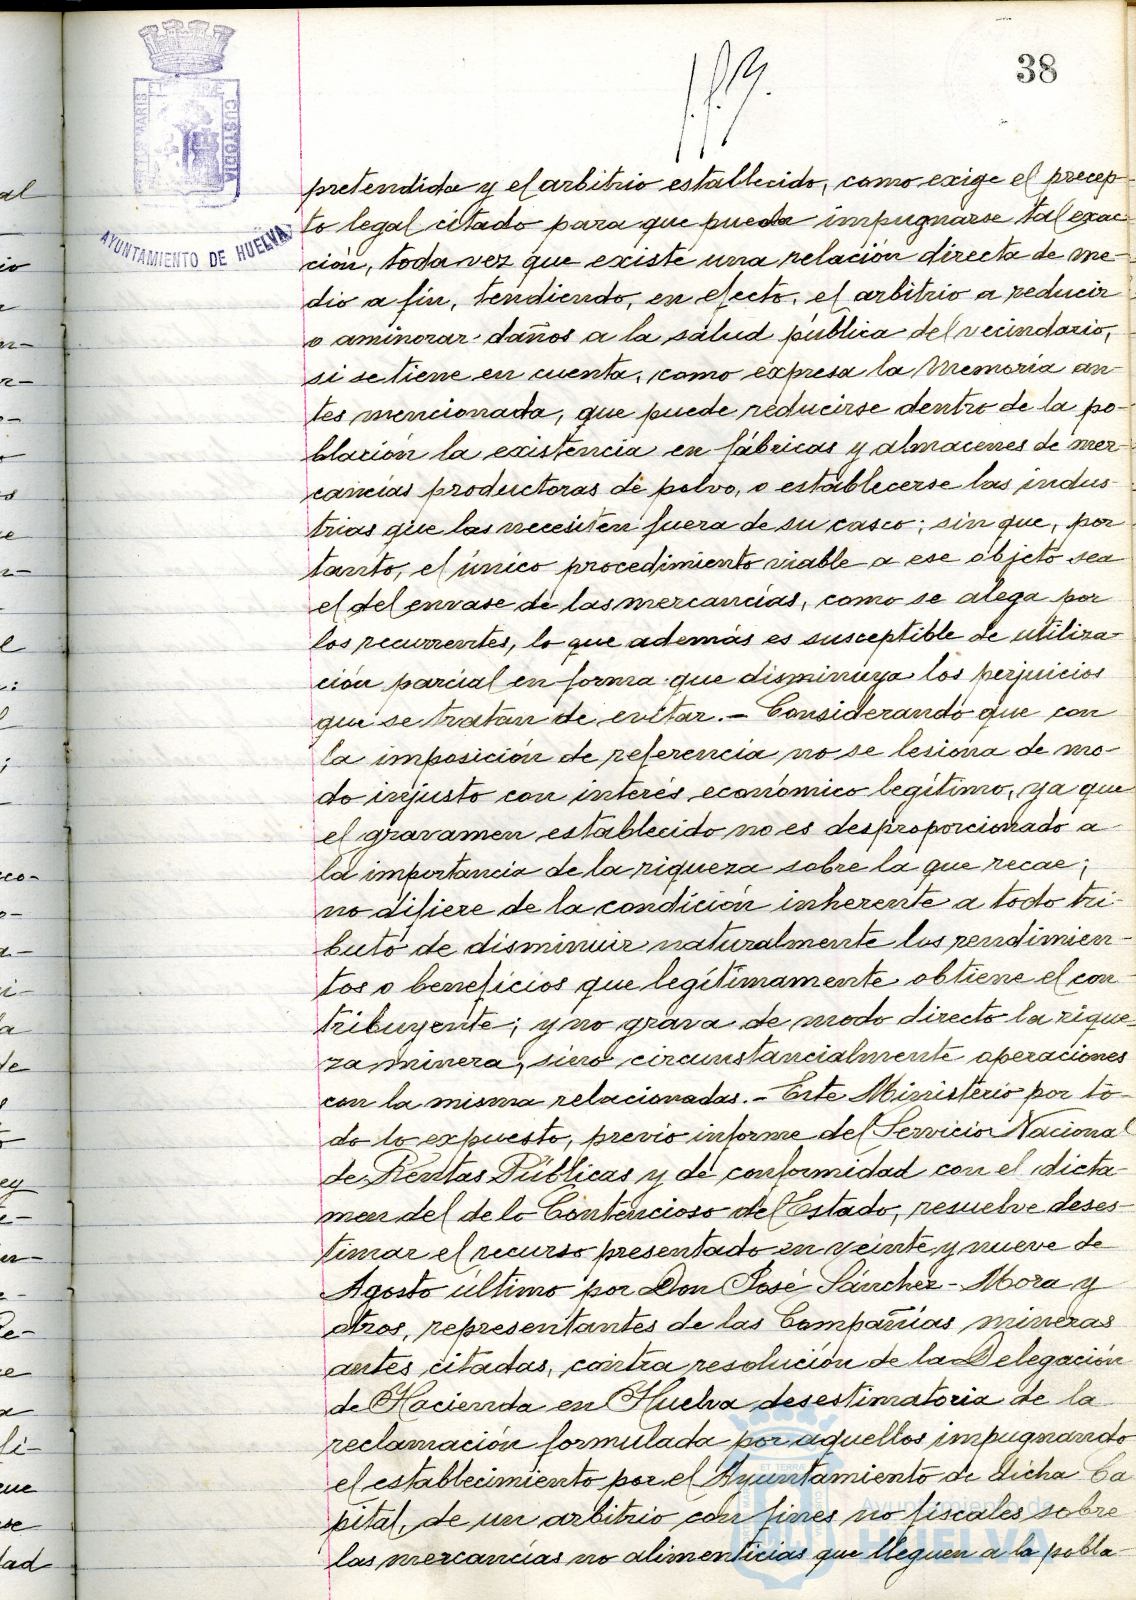 38
AYUNTAMIENTO DE HUELVA
CUSTODIA
pretendida y el arbitrio establecido, como exige el precep-
to legal citado para que pueda impugnarse tal exac-
ción, toda vez que existe una relación directa de me-
dio a fin, tendiendo, en efecto, el arbitrio a reducir
o aminorar daños a la salud pública del vecindario,
si se tiene en cuenta, como expresa la Memoria an-
tes mencionada, que puede reducirse dentro de la po-
blación la existencia en fábricas y almacenes de mer-
cancías productoras de polvo, o establecerse las indus-
trias que las necesiten fuera de su casco; sin que, por
tanto, el único procedimiento viable a ese objeto sea
el del envase de las mercancías, como se alega por
los recurrentes, lo que además es susceptible de utiliza-
ción parcial en forma que disminuya los perjuicios
que se tratan de evitar.- Considerando que con
la imposición de referencia no se lesiona de mo-
do injusto con interés económico legítimo, ya que
el gravamen establecido no es desproporcionado a
la importancia de la riqueza sobre la que recae;
no difiere de la condición inherente a todo tri-
buto de disminuir naturalmente los rendimien-
tos o beneficios que legítimamente obtiene el con-
tribuyente; y no grava de modo directo la rique-
za minera, sino circunstancialmente operaciones
con la misma relacionadas.- Este Ministerio por to-
do lo expuesto, previo informe del Servicio Nacional
de Rentas Públicas y de conformidad con el dicta-
men del de lo Contencioso del Estado, resuelve deses-
timar el recurso presentado en veinte y nueve de
Agosto último por Don José Sánchez-Mora y
otros, representantes de las Compañías mineras
antes citadas, contra resolución de la Delegación
de Hacienda en Huelva desestimatoria de la
reclamación formulada por aquellos impugnando
el establecimiento por el Ayuntamiento de dicha Ca
pital, de un arbitrio con fines no fiscales sobre
las mercancías no alimenticias que lleguen a la pobla-
Ayuntamiento de
HUELVA